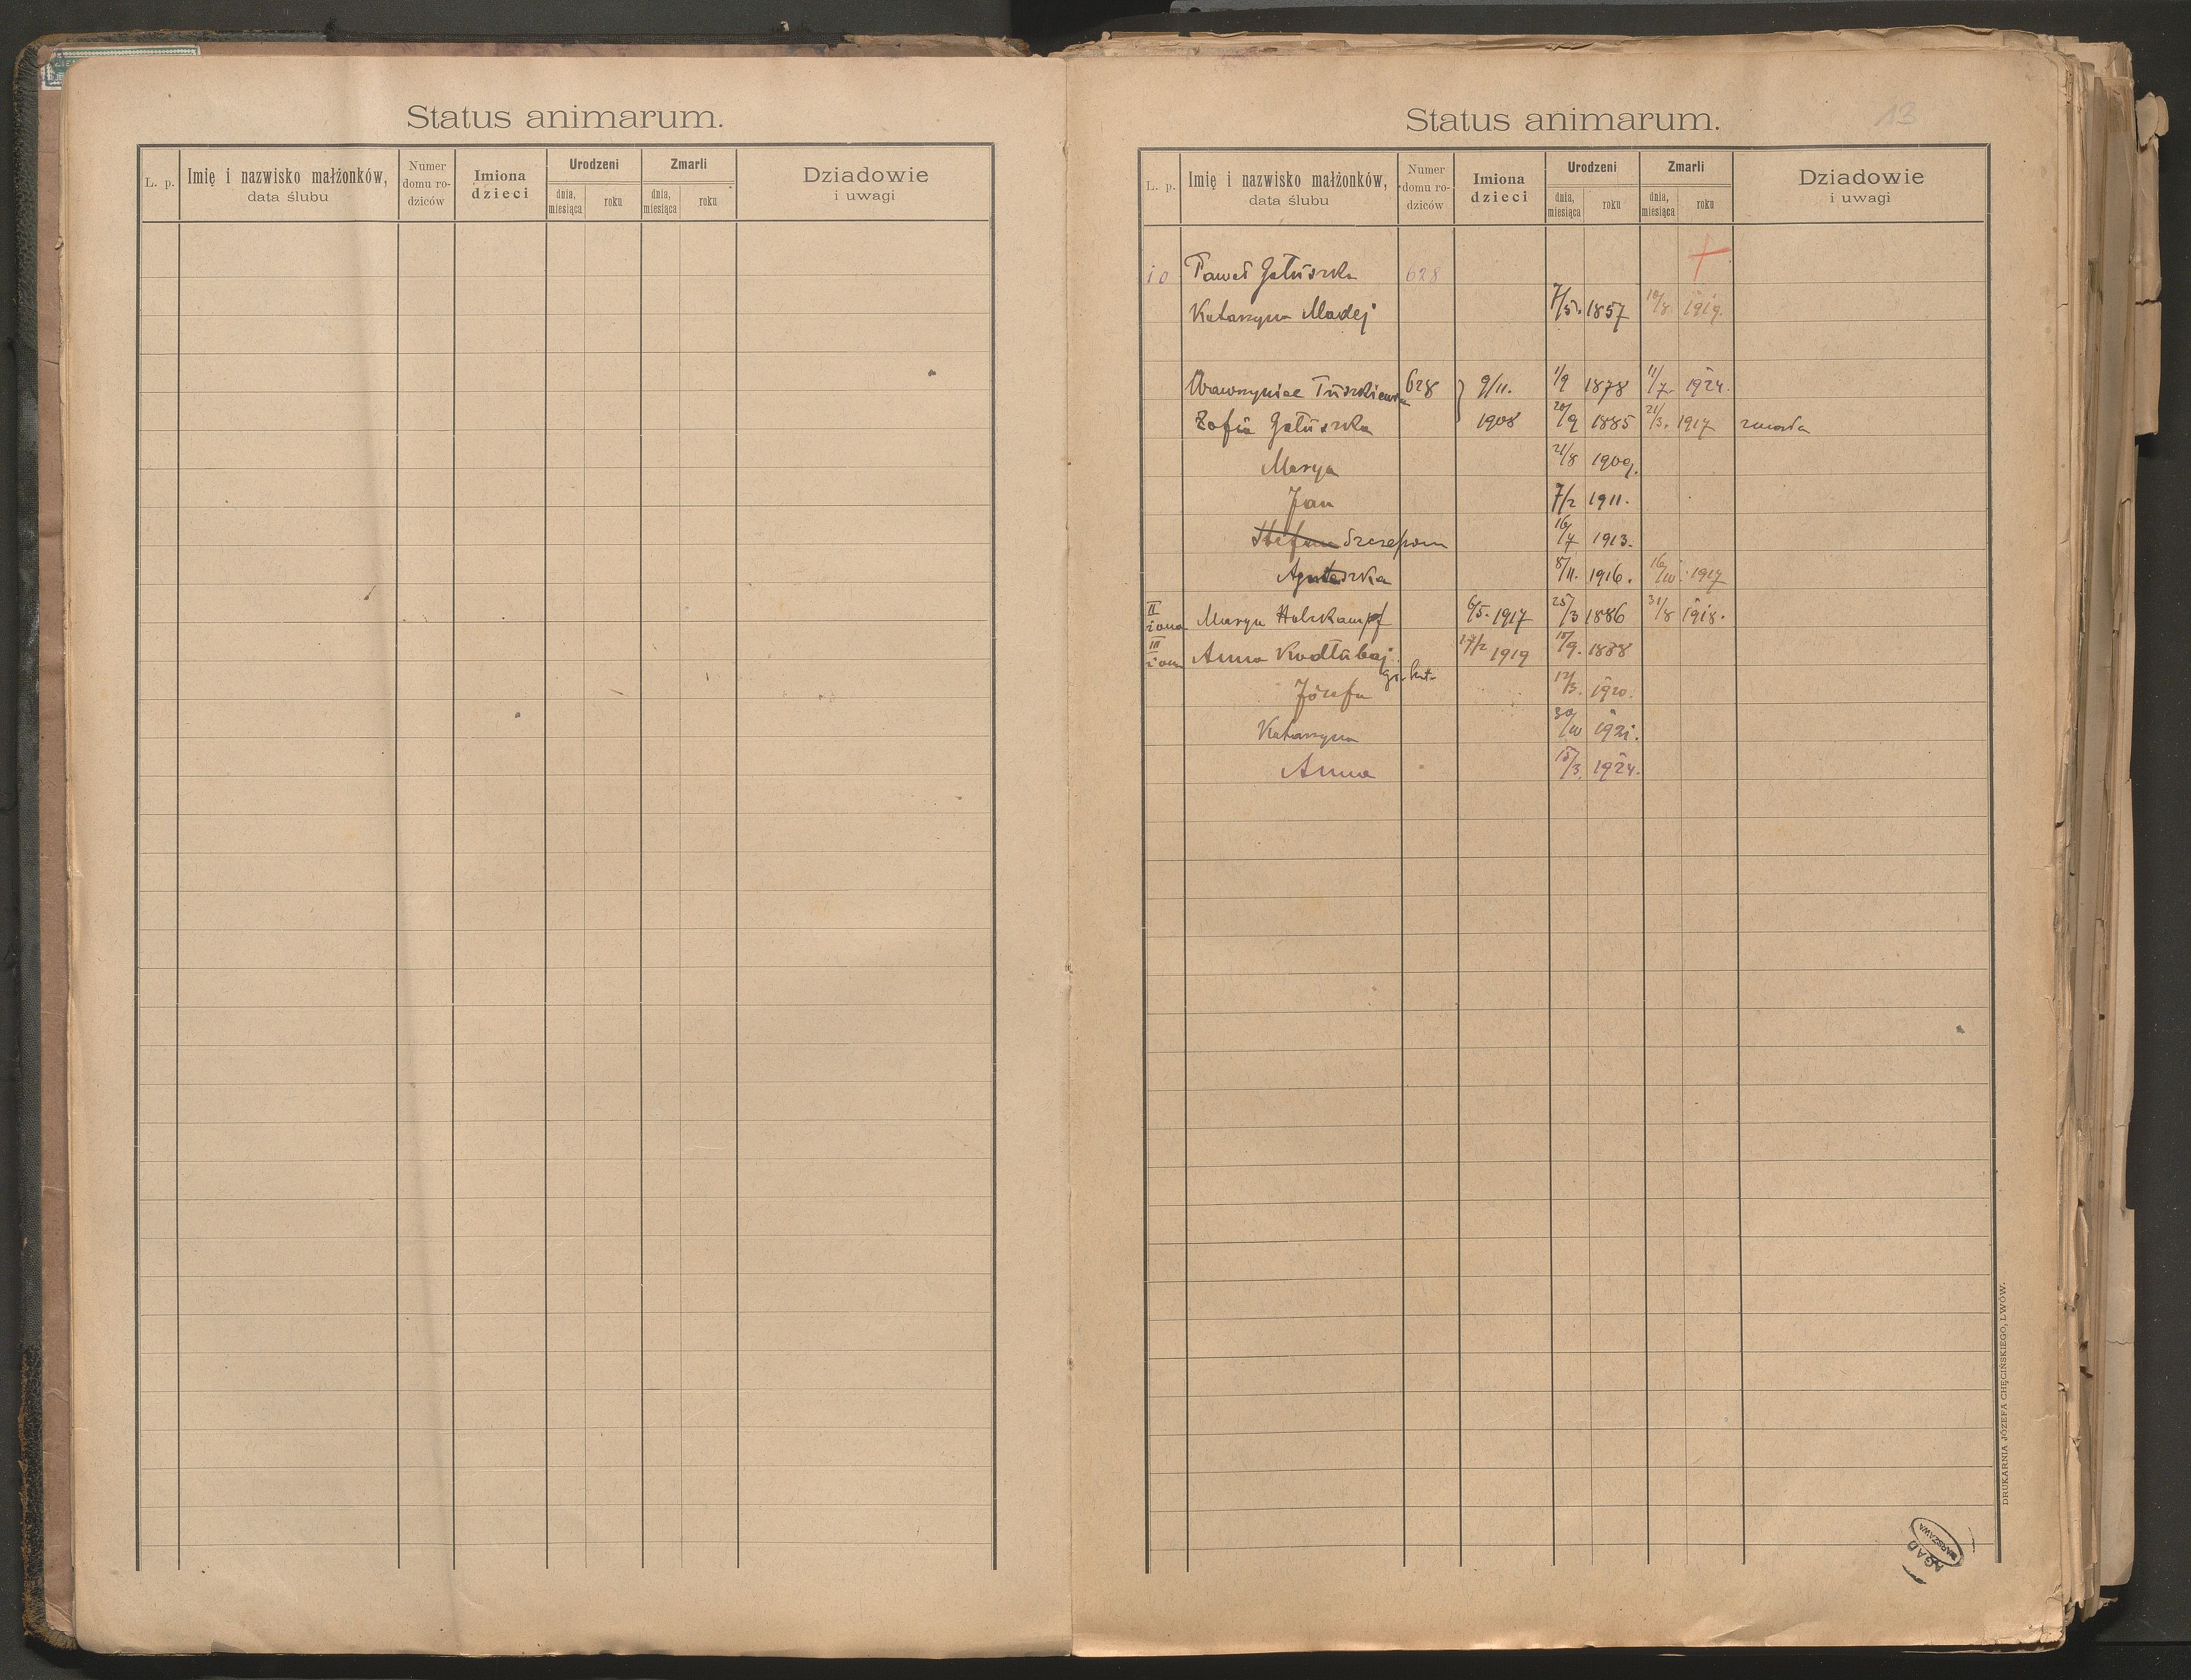 Status animarum.
L. p. Imię i nazwisko małżonków, data ślubu Numer domu rodziców Imiona dzieci Urodzeni dnia, miesiąca roku Zmarli dnia, miesiąca roku Dziadowie i uwagi
Status animarum. 13
L. p. Imię i nazwisko małżonków, data ślubu Numer domu ro-dziców Imiona dzieci Urodzeni dnia, miesiąca roku Zmarli dnia, miesiąca roku Dziadowie i uwagi
10 Paweł Gałuszka 628
Katarzyna Madej 7/5. 1857 10/8. 1919.
Wawrzyniec 628 9/11. 1/9 1878 11/7. 1924.
Zofia Gałuszka 1908 20/9 1885 21/3. 1917 zmarła
Marya 21/8 1909.
Jan 7/2 1911.
Stefan Szczepan 16/7 1913.
Agnieszka 8/11. 1916. 16/IV. 1917
II żona Marya Holzkampf 6/5. 1917 25/3 1886 31/8 1918.
III żona Anna Kodłubaj 17/2 1919 15/9. 1888
gr. kat.
Józefa 12/3. 1920.
Katarzyna 30/IV 1921.
Anna 15/3. 1924.
DRUKARNIA JÓZEFA CHĘCIŃSKIEGO, LWÓW.
AGAD
WARSZAWA